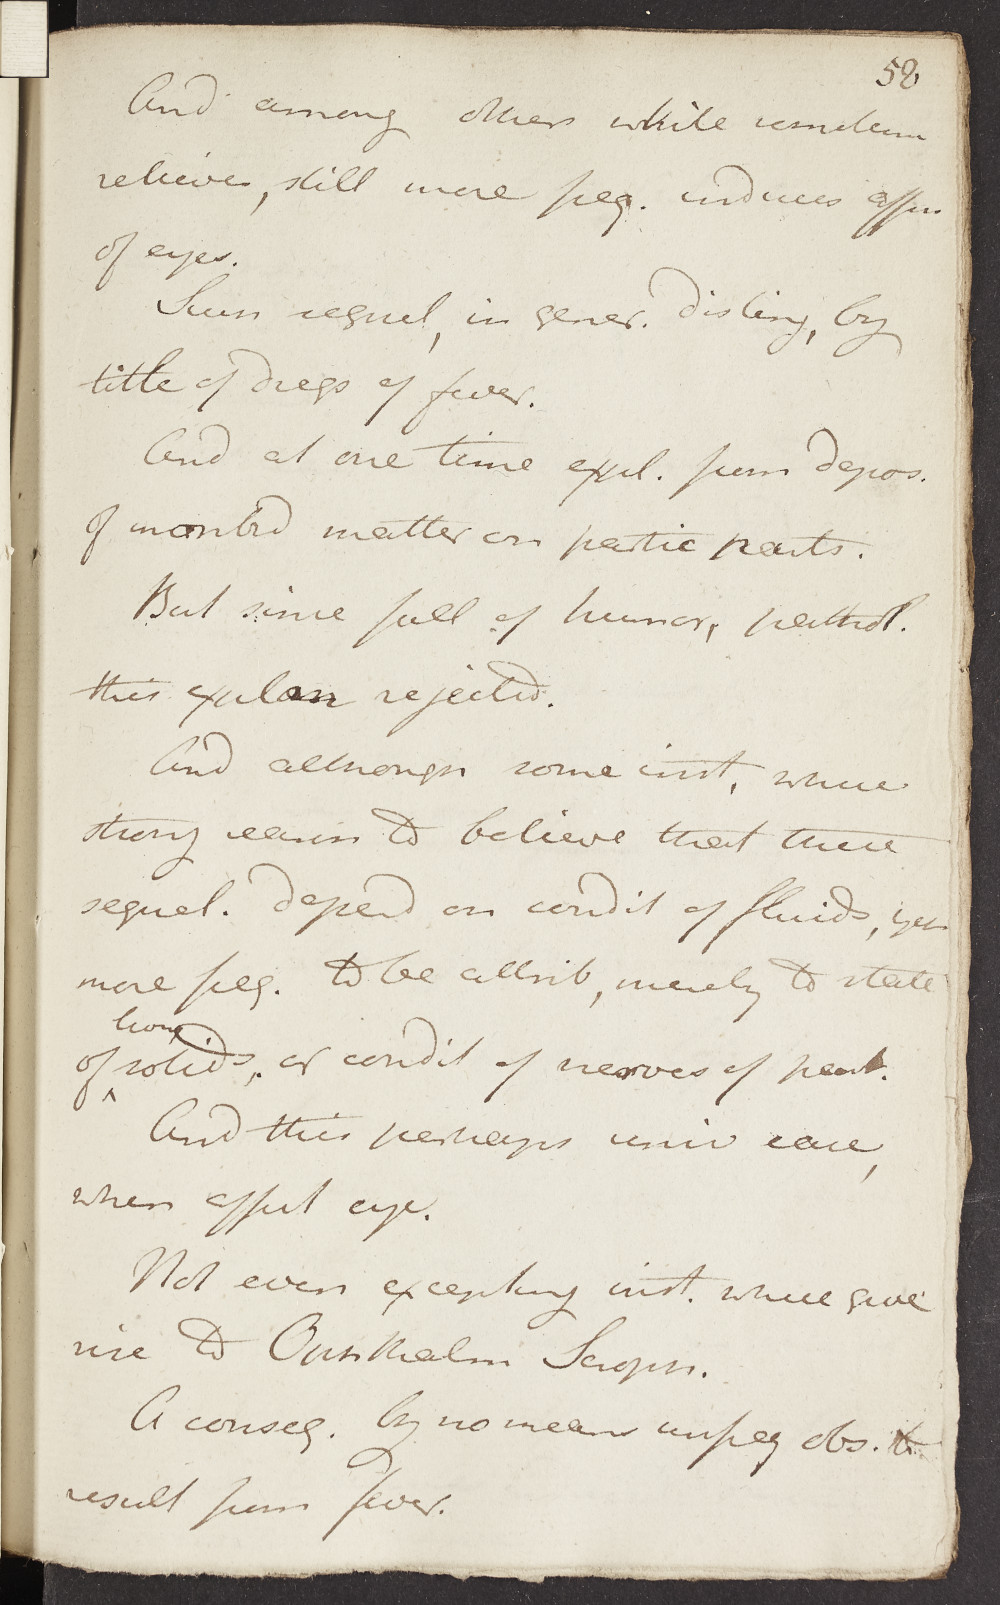 58
And among others while
relieves, still more freq. induces affn
of eyes.
Such sequel, in gener. disting, by
title of dregs of fever.
And at one time expl. from depos.
of morbid matter on partic parts.
But since fall of humor, pathol.
this explan rejected.
And although some inst, where
strong reason to believe that these
sequel. depend on condit of fluids, yet
more freq. to be attrib, merely to state
living
of solids, or condit of nerves of part.
And this perhaps univ case,
when affect eye.
Not even excepting inst. where give
rise to Ophthalm Scroph.
A conseq. by no means unfreq obs. to
result from fever.